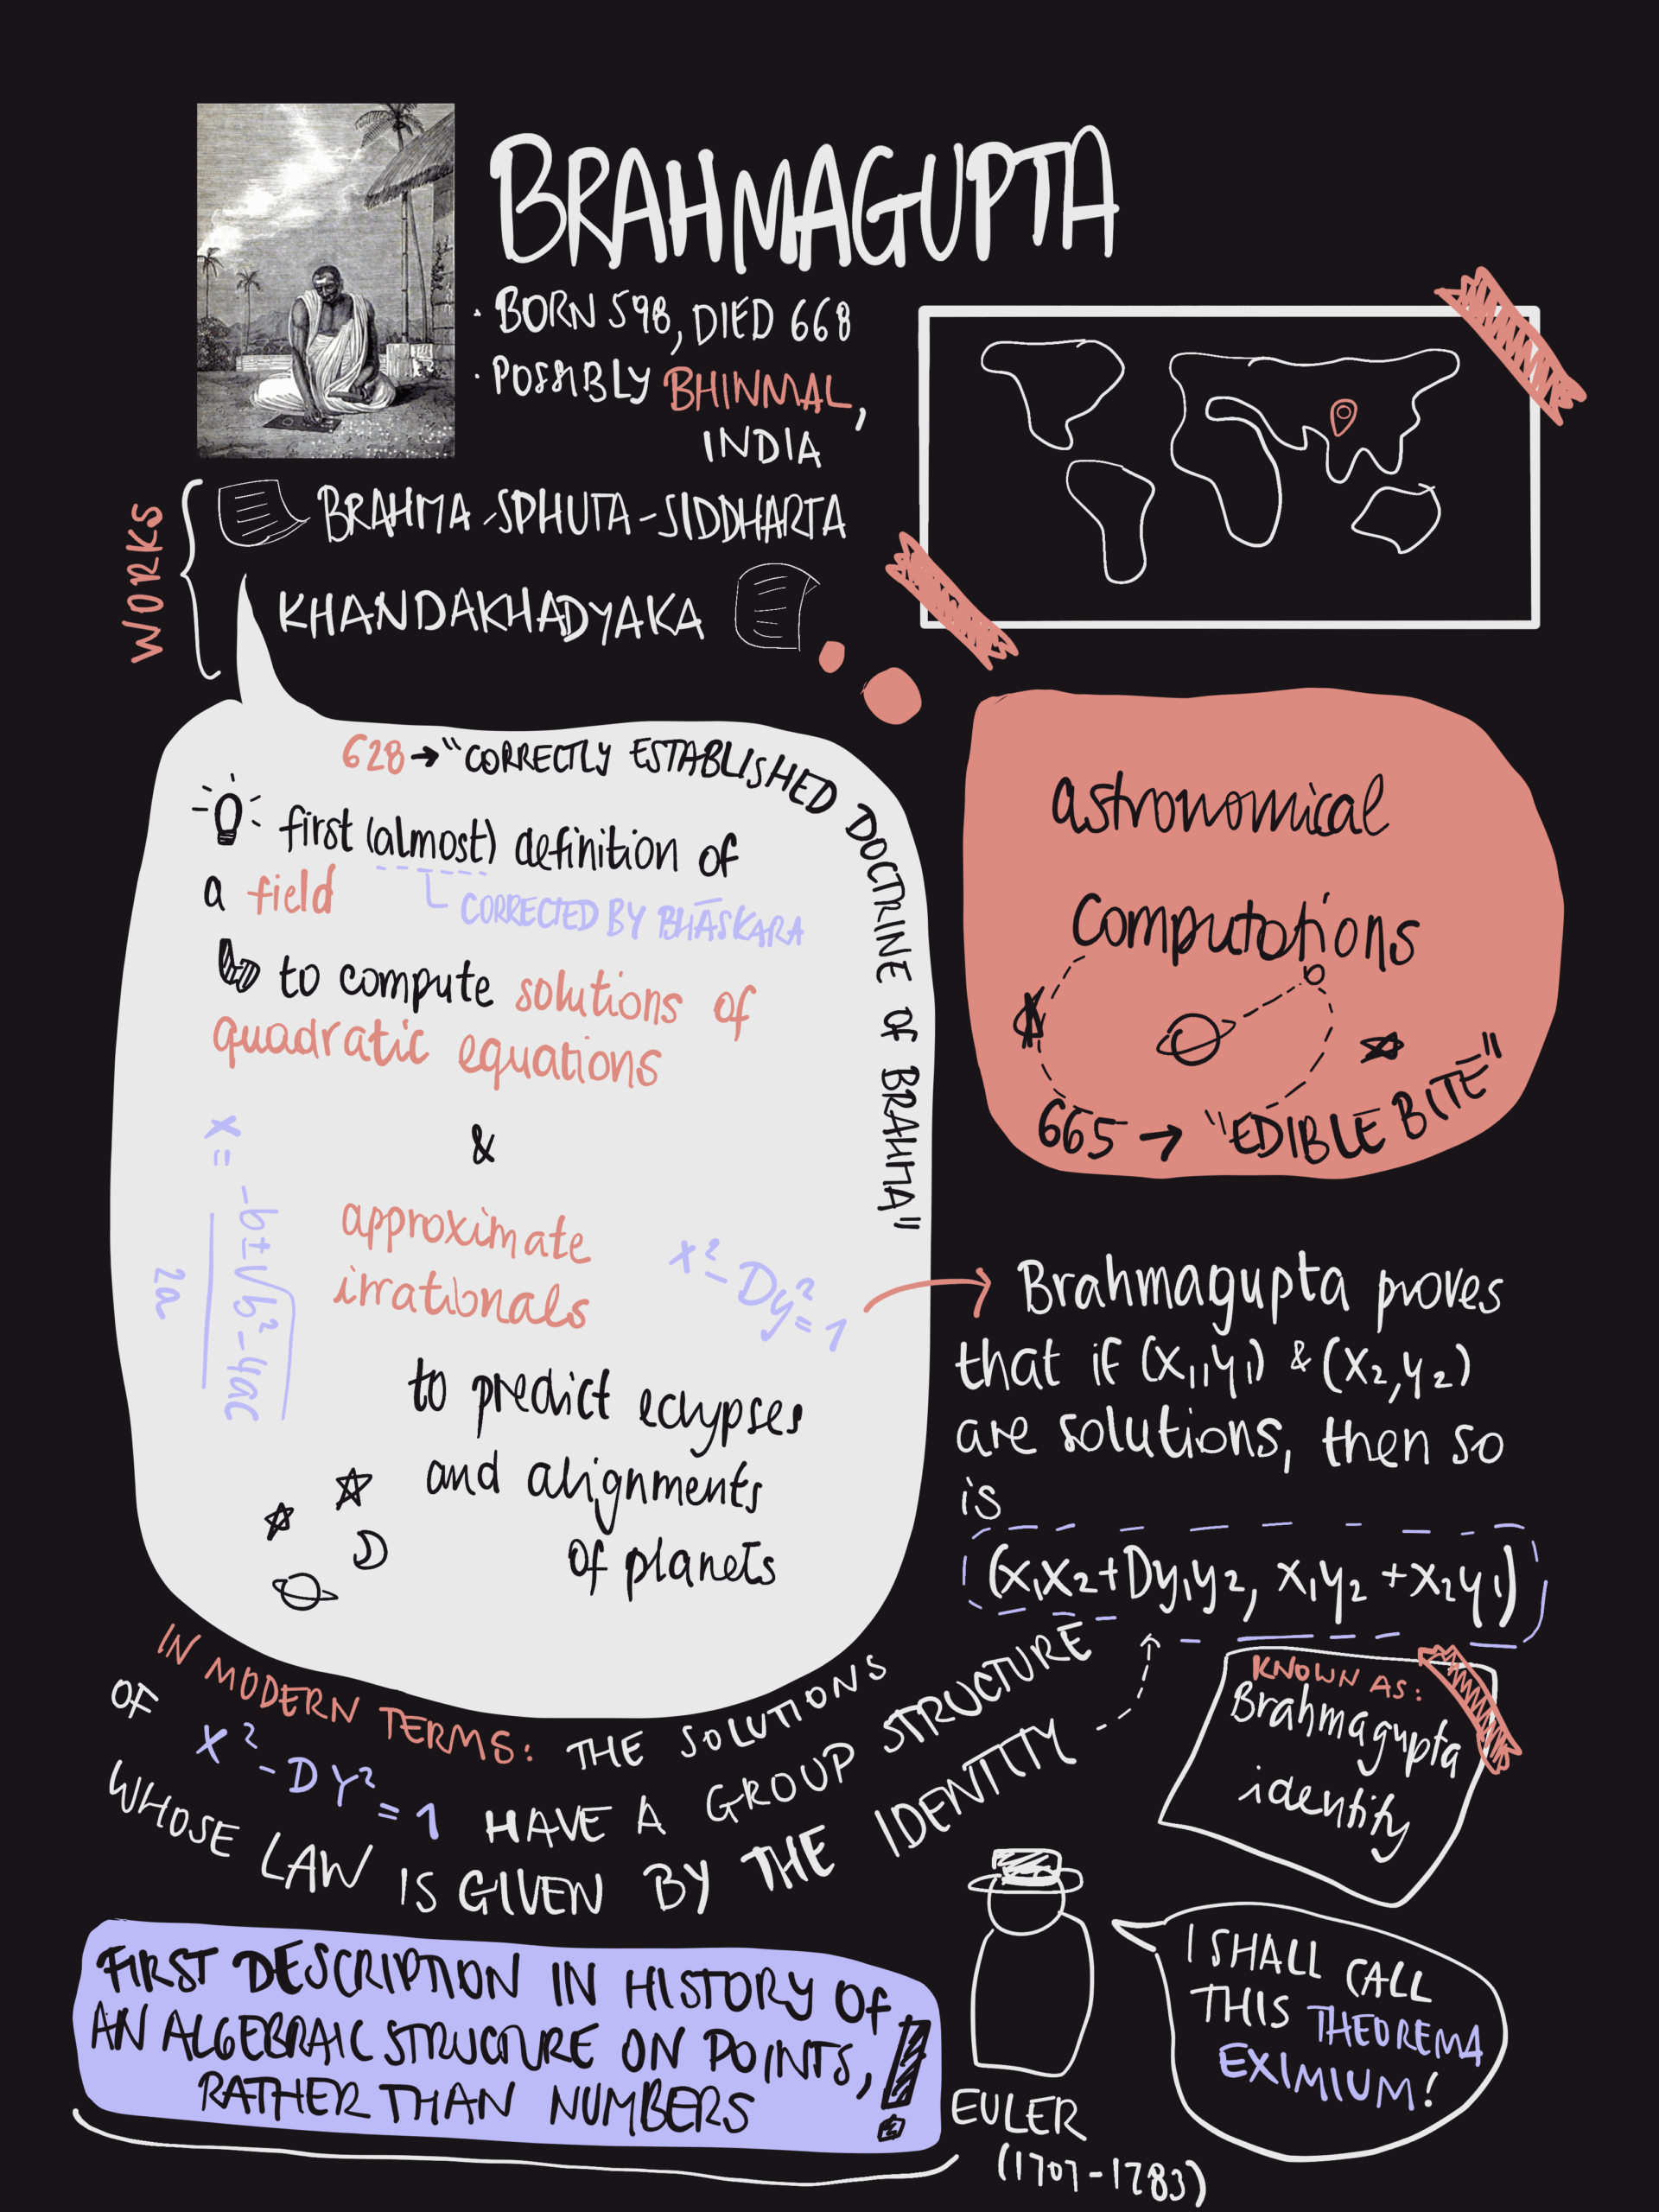 BRAHMAGUPTA
· BORN 598, DIED 668
· POSSIBLY BHINMAL,
INDIA
WORKS
BRAHMA-SPHUTA-SIDDHARTA
KHANDAKHADYAKA
628 → "CORRECTLY ESTABLISHED DOCTRINE OF BRAHMA"
first (almost) definition of
a field
CORRECTED BY BHĀSKARA
to compute solutions of
quadratic equations
&
approximate
irrationals
x = -b±√b²-4ac
2a
x²-Dy²=1
to predict eclypses
and alignments
of planets
astronomical
computations
665 → "EDIBLE BITE"
Brahmagupta proves
that if (x₁,y₁) & (x₂,y₂)
are solutions, then so
is
(x₁x₂+Dy₁y₂, x₁y₂+x₂y₁)
KNOWN AS:
Brahmagupta
identity
IN MODERN TERMS: THE SOLUTIONS
OF X²-DY²=1 HAVE A GROUP STRUCTURE
WHOSE LAW IS GIVEN BY THE IDENTITY
FIRST DESCRIPTION IN HISTORY OF
AN ALGEBRAIC STRUCTURE ON POINTS,
RATHER THAN NUMBERS!
I SHALL CALL
THIS THEOREMA
EXIMIUM!
EULER
(1707-1783)